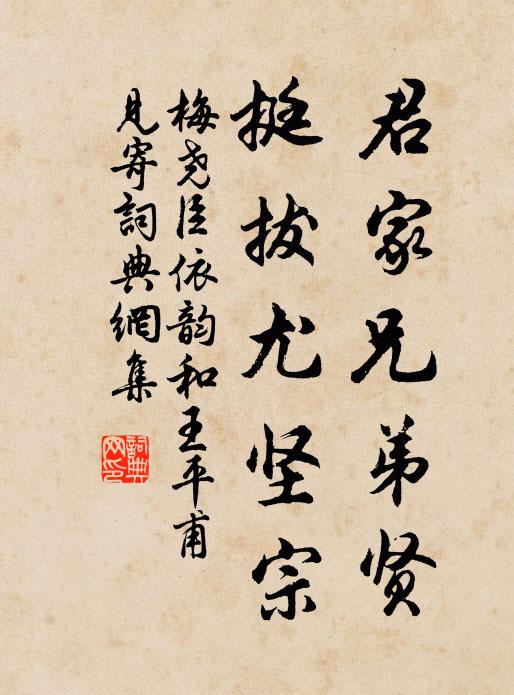 君家兄弟贤
挺拔尤坚宗
梅尧臣依韵和王平甫
见寄詞典網集
詞典网印